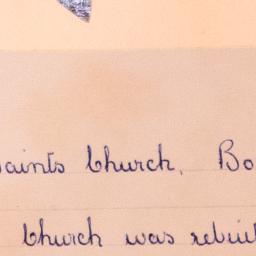 saints Church, Bo
Church was rebuil